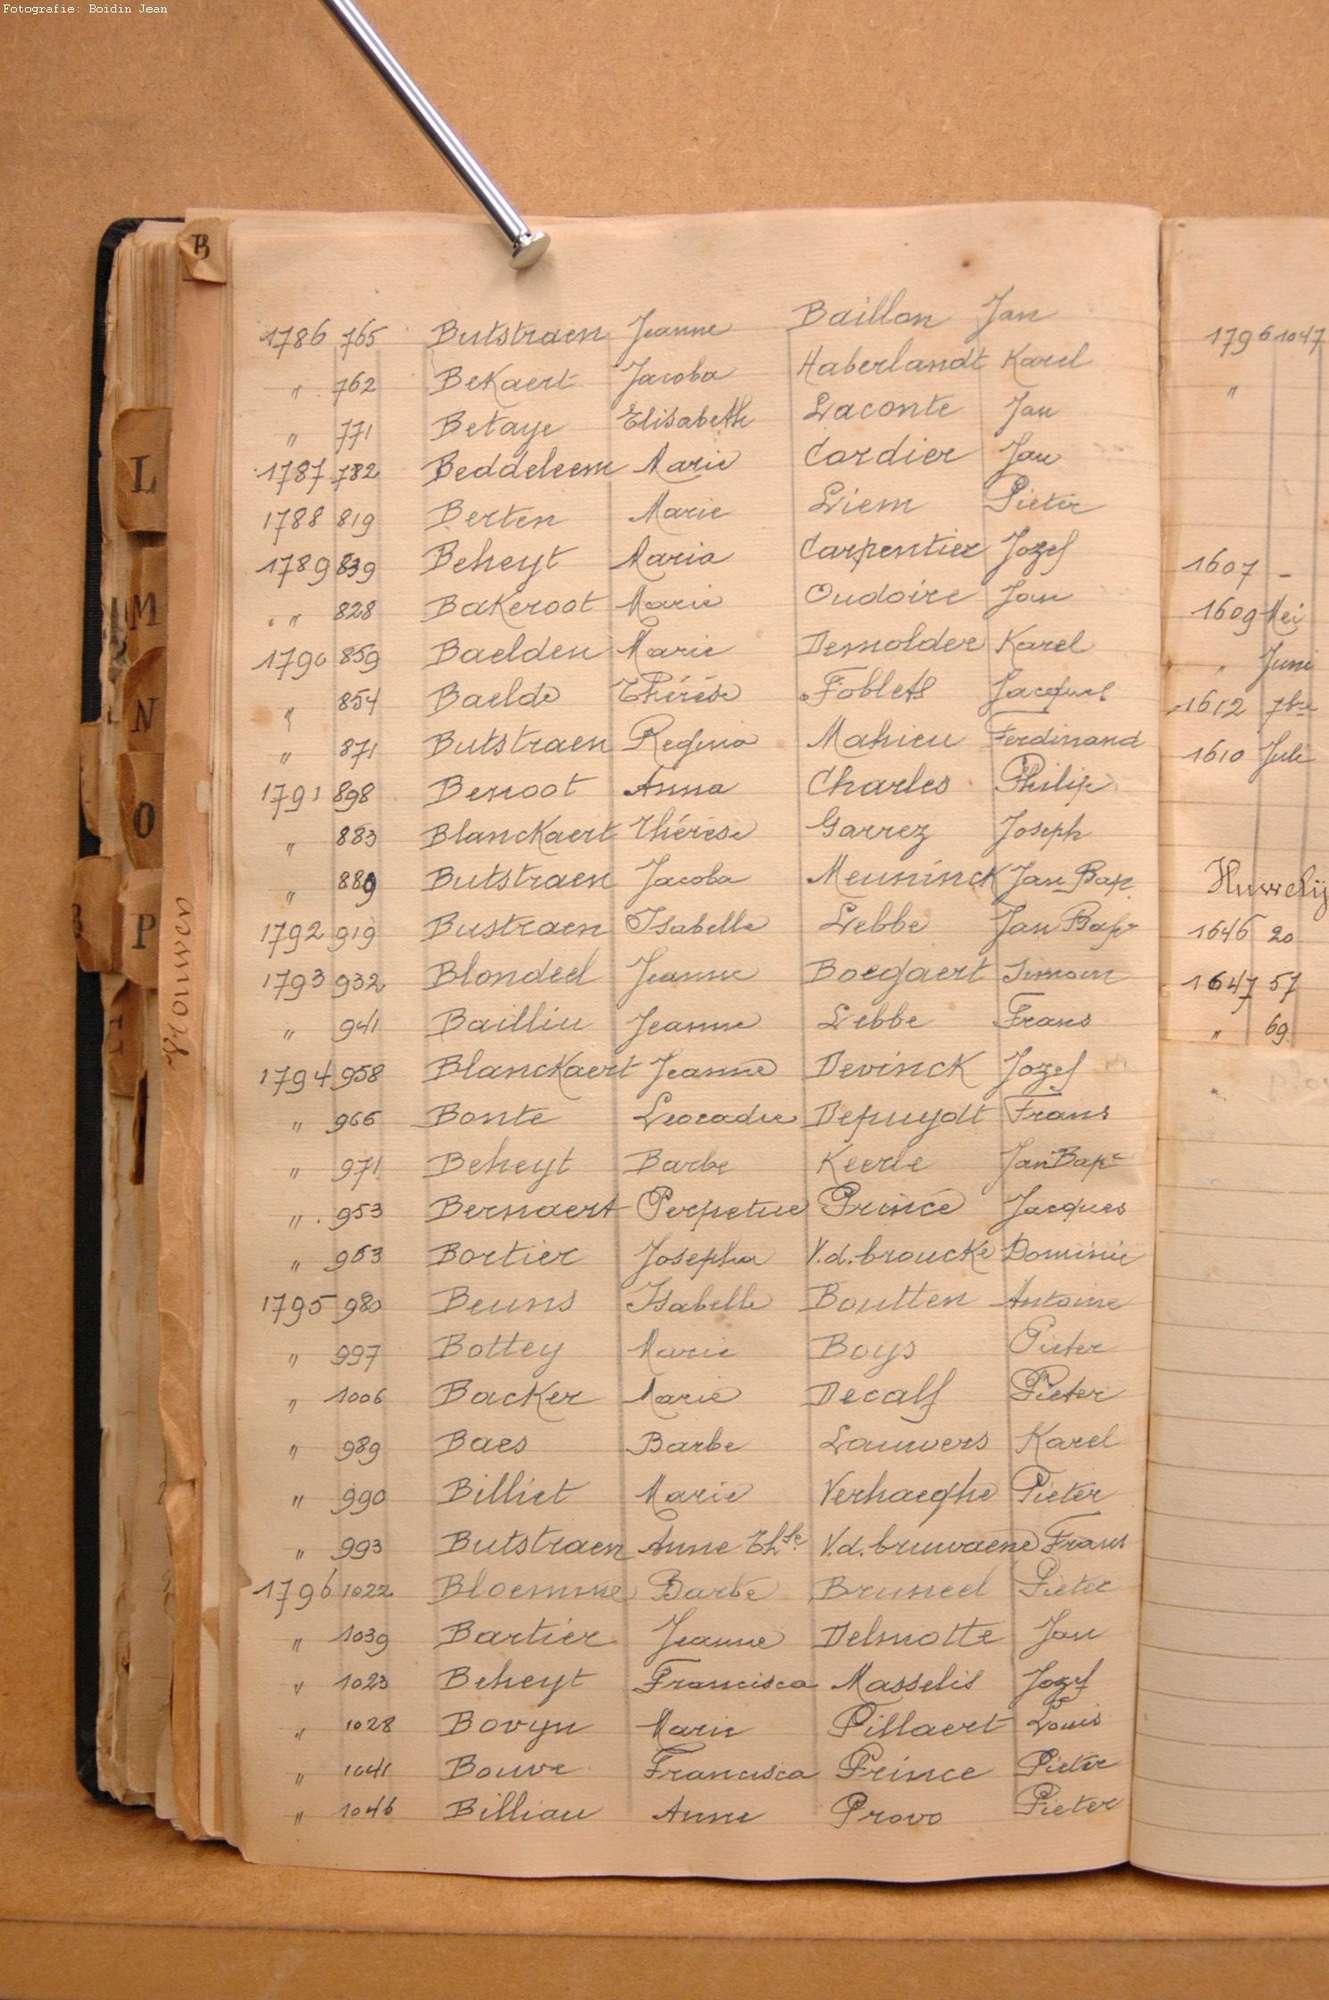 Fotografie: Boidin Jean
B
1786 765 Butstraen Jeanne Baillon Jan
" 762 Bekaert Jacoba Haberlandt Karel
" 771 Betaye Elisabeth Laconte Jan
1787 782 Beddeleem Marie Cordier Jan
1788 819 Berten Marie Liem Pieter
1789 839 Beheyt Maria Carpentier Jozef
" 828 Bakeroot Marie Oudoire Jan
1790 859 Baelden Marie Demolder Karel
" 854 Baelde Thérése Foblets Jacques
" 871 Butstraen Regina Mahieu Ferdinand
1791 898 Benoot Anna Charles Philip
" 883 Blanckaert Thérèse Garrez Joseph
" 889 Butstraen Jacoba Meuninck Jan Bap
1792 919 Bustraen Isabelle Lebbe Jan Bapt
1793 932 Blondeel Jeanne Boegaert Simoen
" 941 Bailliu Jeanne Lebbe Frans
1794 958 Blanckaert Jeanne Devinck Jozef
" 966 Bonte Leocadie Depuydt Frans
" 971 Beheyt Barbe Keerle Jan Bapt
" 953 Bernaert Perpetue Prince Jacques
" 963 Bortier Josepha V.d.broucke Dominie
1795 980 Beuns Isabelle Boutten Antoine
" 997 Bottey Marie Boys Pieter
" 1006 Backer Marie Decalf Pieter
" 989 Baes Barbe Lauwers Karel
" 990 Billiet Marie Verhaeghe Pieter
" 993 Butstraen Anne Thse V.d.bruwaene Frans
1796 1022 Bloemme Barbe Bruneel Pieter
" 1039 Bartier Jeanne Delmotte Jan
" 1023 Beheyt Francisca Masselis Jozef
" 1028 Bovyn Marie Pillaert Louis
" 1041 Bouve Francisca Prince Pieter
" 1046 Billiau Anne Provo Pieter
L
M
N
O
P
Vrouwen
1796 1047
"
1607 -
1609 Mei
" Juni
1612 7bre
1610 Juli
Huwelij
1646 20
1647 57
" 69